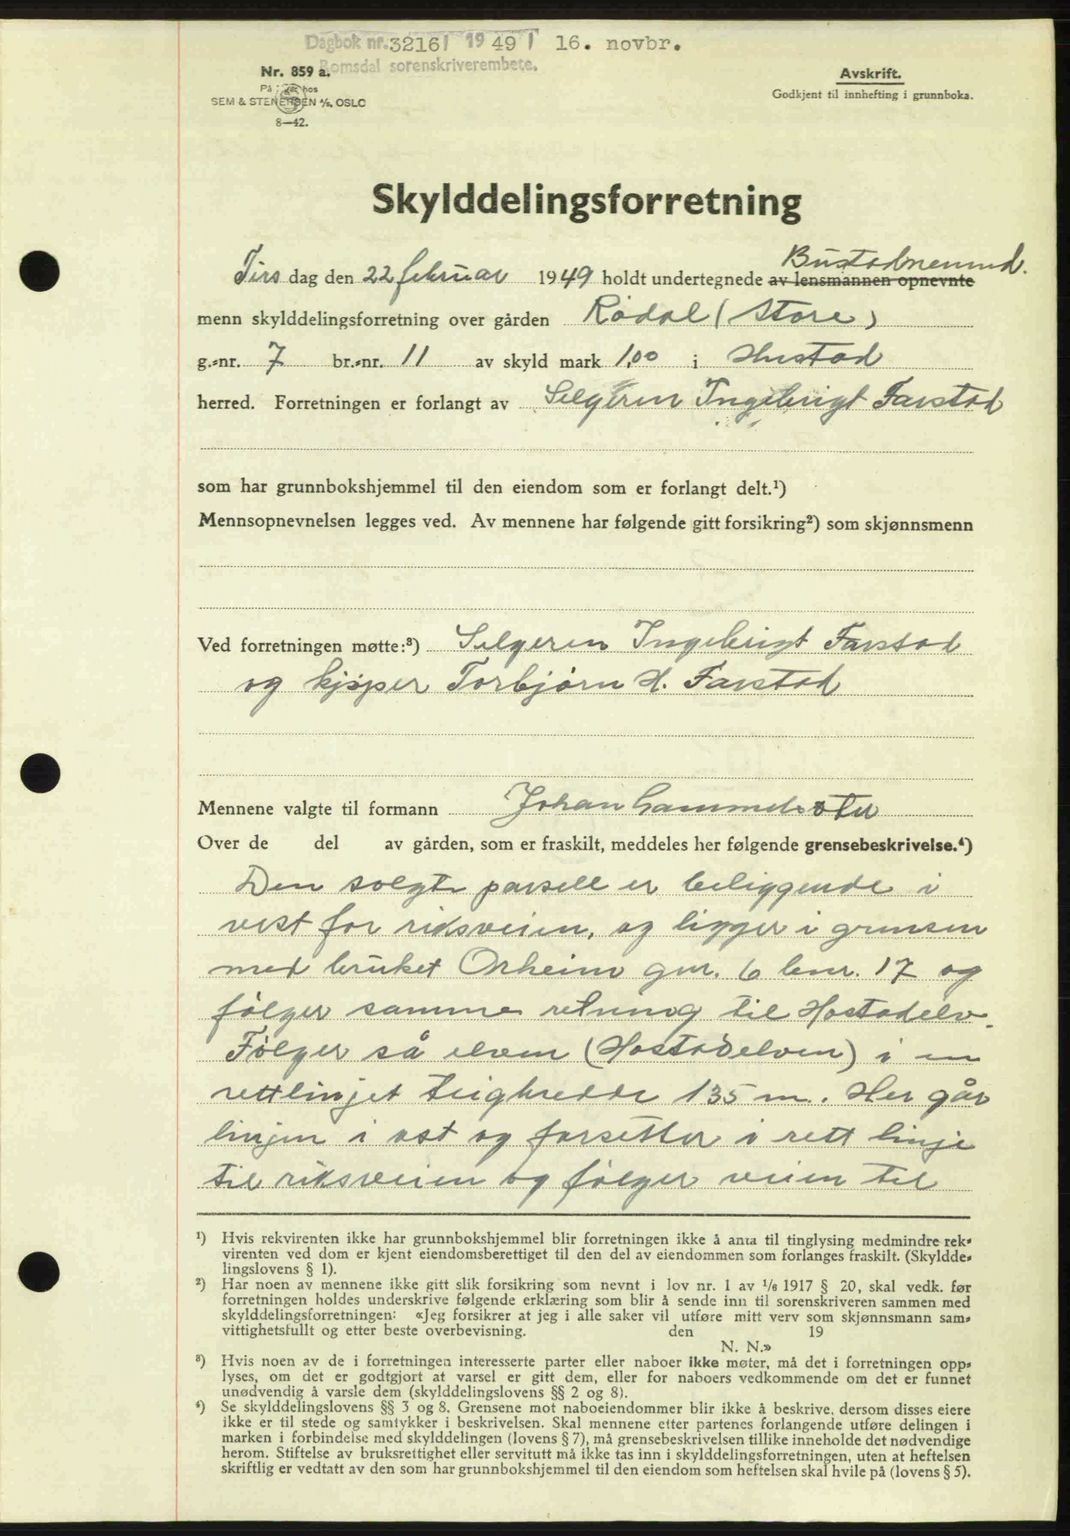 Dagbok nr. 3216/ 1949/ 16. novbr.
Romsdal sorenskriverembete.
Nr. 859 a.
På lager hos
SEM & STENERSEN A/S, OSLO
8—42.
Avskrift.
Godkjent til innhefting i grunnboka.
Skylddelingsforretning
Bustadnemnd.
Tirs dag den 22 februar 1949 holdt undertegnede av lensmannen opnevnte
menn skylddelingsforretning over gården Rødal (Store)
g.-nr. 7 br.-nr. 11 av skyld mark 1,00 i Hustad
herred. Forretningen er forlangt av Selgeren Ingebrigt Farstad
som har grunnbokshjemmel til den eiendom som er forlangt delt.¹)
Mennsopnevnelsen legges ved. Av mennene har følgende gitt forsikring²) som skjønnsmenn
Ved forretningen møtte:³) Selgeren Ingebrigt Farstad
og kjøper Torbjørn H. Farstad
Mennene valgte til formann Johan
Over de del av gården, som er fraskilt, meddeles her følgende grensebeskrivelse.⁴)
Den solgte parsell er beliggende i
vest for riksveien, og ligger i grensen
med bruket Orheim gnr. 6 bnr. 17 og
følger samme retning til Hostadelv.
Følger så elven (Hostadelven) i en
rettlinjet teigbredde 135 m. Her går
linjen i ost og forsetter i rett linje
til riksveien og følger veien til
¹) Hvis rekvirenten ikke har grunnbokshjemmel blir forretningen ikke å anta til tinglysing medmindre rek-
virenten ved dom er kjent eiendomsberettiget til den del av eiendommen som forlanges fraskilt. (Skyldde-
lingslovens § 1).
²) Har noen av mennene ikke gitt slik forsikring som nevnt i lov nr. 1 av 1/6 1917 § 20, skal vedk. før
forretningen holdes underskrive følgende erklæring som blir å sende inn til sorenskriveren sammen med
skylddelingsforretningen: «Jeg forsikrer at jeg i alle saker vil utføre mitt verv som skjønnsmann sam-
vittighetsfullt og etter beste overbevisning. den 19
N. N.»
³) Hvis noen av de i forretningen interesserte parter eller naboer ikke møter, må det i forretningen opp-
lyses, om det er godtgjort at varsel er gitt dem, eller for naboers vedkommende om det er funnet
unødvendig å varsle dem (skylddelingslovens §§ 2 og 8).
⁴) Se skylddelingslovens §§ 3 og 8. Grensene mot naboeiendommer blir ikke å beskrive, dersom disses eiere
ikke er til stede og samtykker i beskrivelsen. Skal mennene etter partenes forlangende utføre delingen i
marken i forbindelse med skylddelingen (lovens § 7), må grensebeskrivelsen tillike inneholde det nødvendige
herom. Stiftelse av bruksrettighet eller servitutt må ikke tas inn i skylddelingsforretningen, uten at heftelsen
skriftlig er vedtatt av den som har grunnbokshjemmel til den eiendom som heftelsen skal hvile på (lovens § 5).